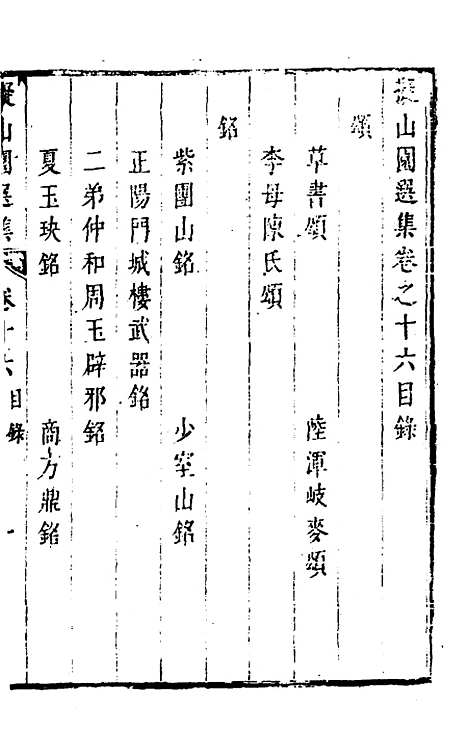 擬山園選集卷之十六目錄
頌
草書頌　陸渾岐麥頌
李母陳氏頌
銘
紫團山銘　少室山銘
正陽門城樓武器銘
二弟仲和周玉辟邪銘
夏玉玦銘　商方鼎銘
擬山園選集　卷十六　目錄　一